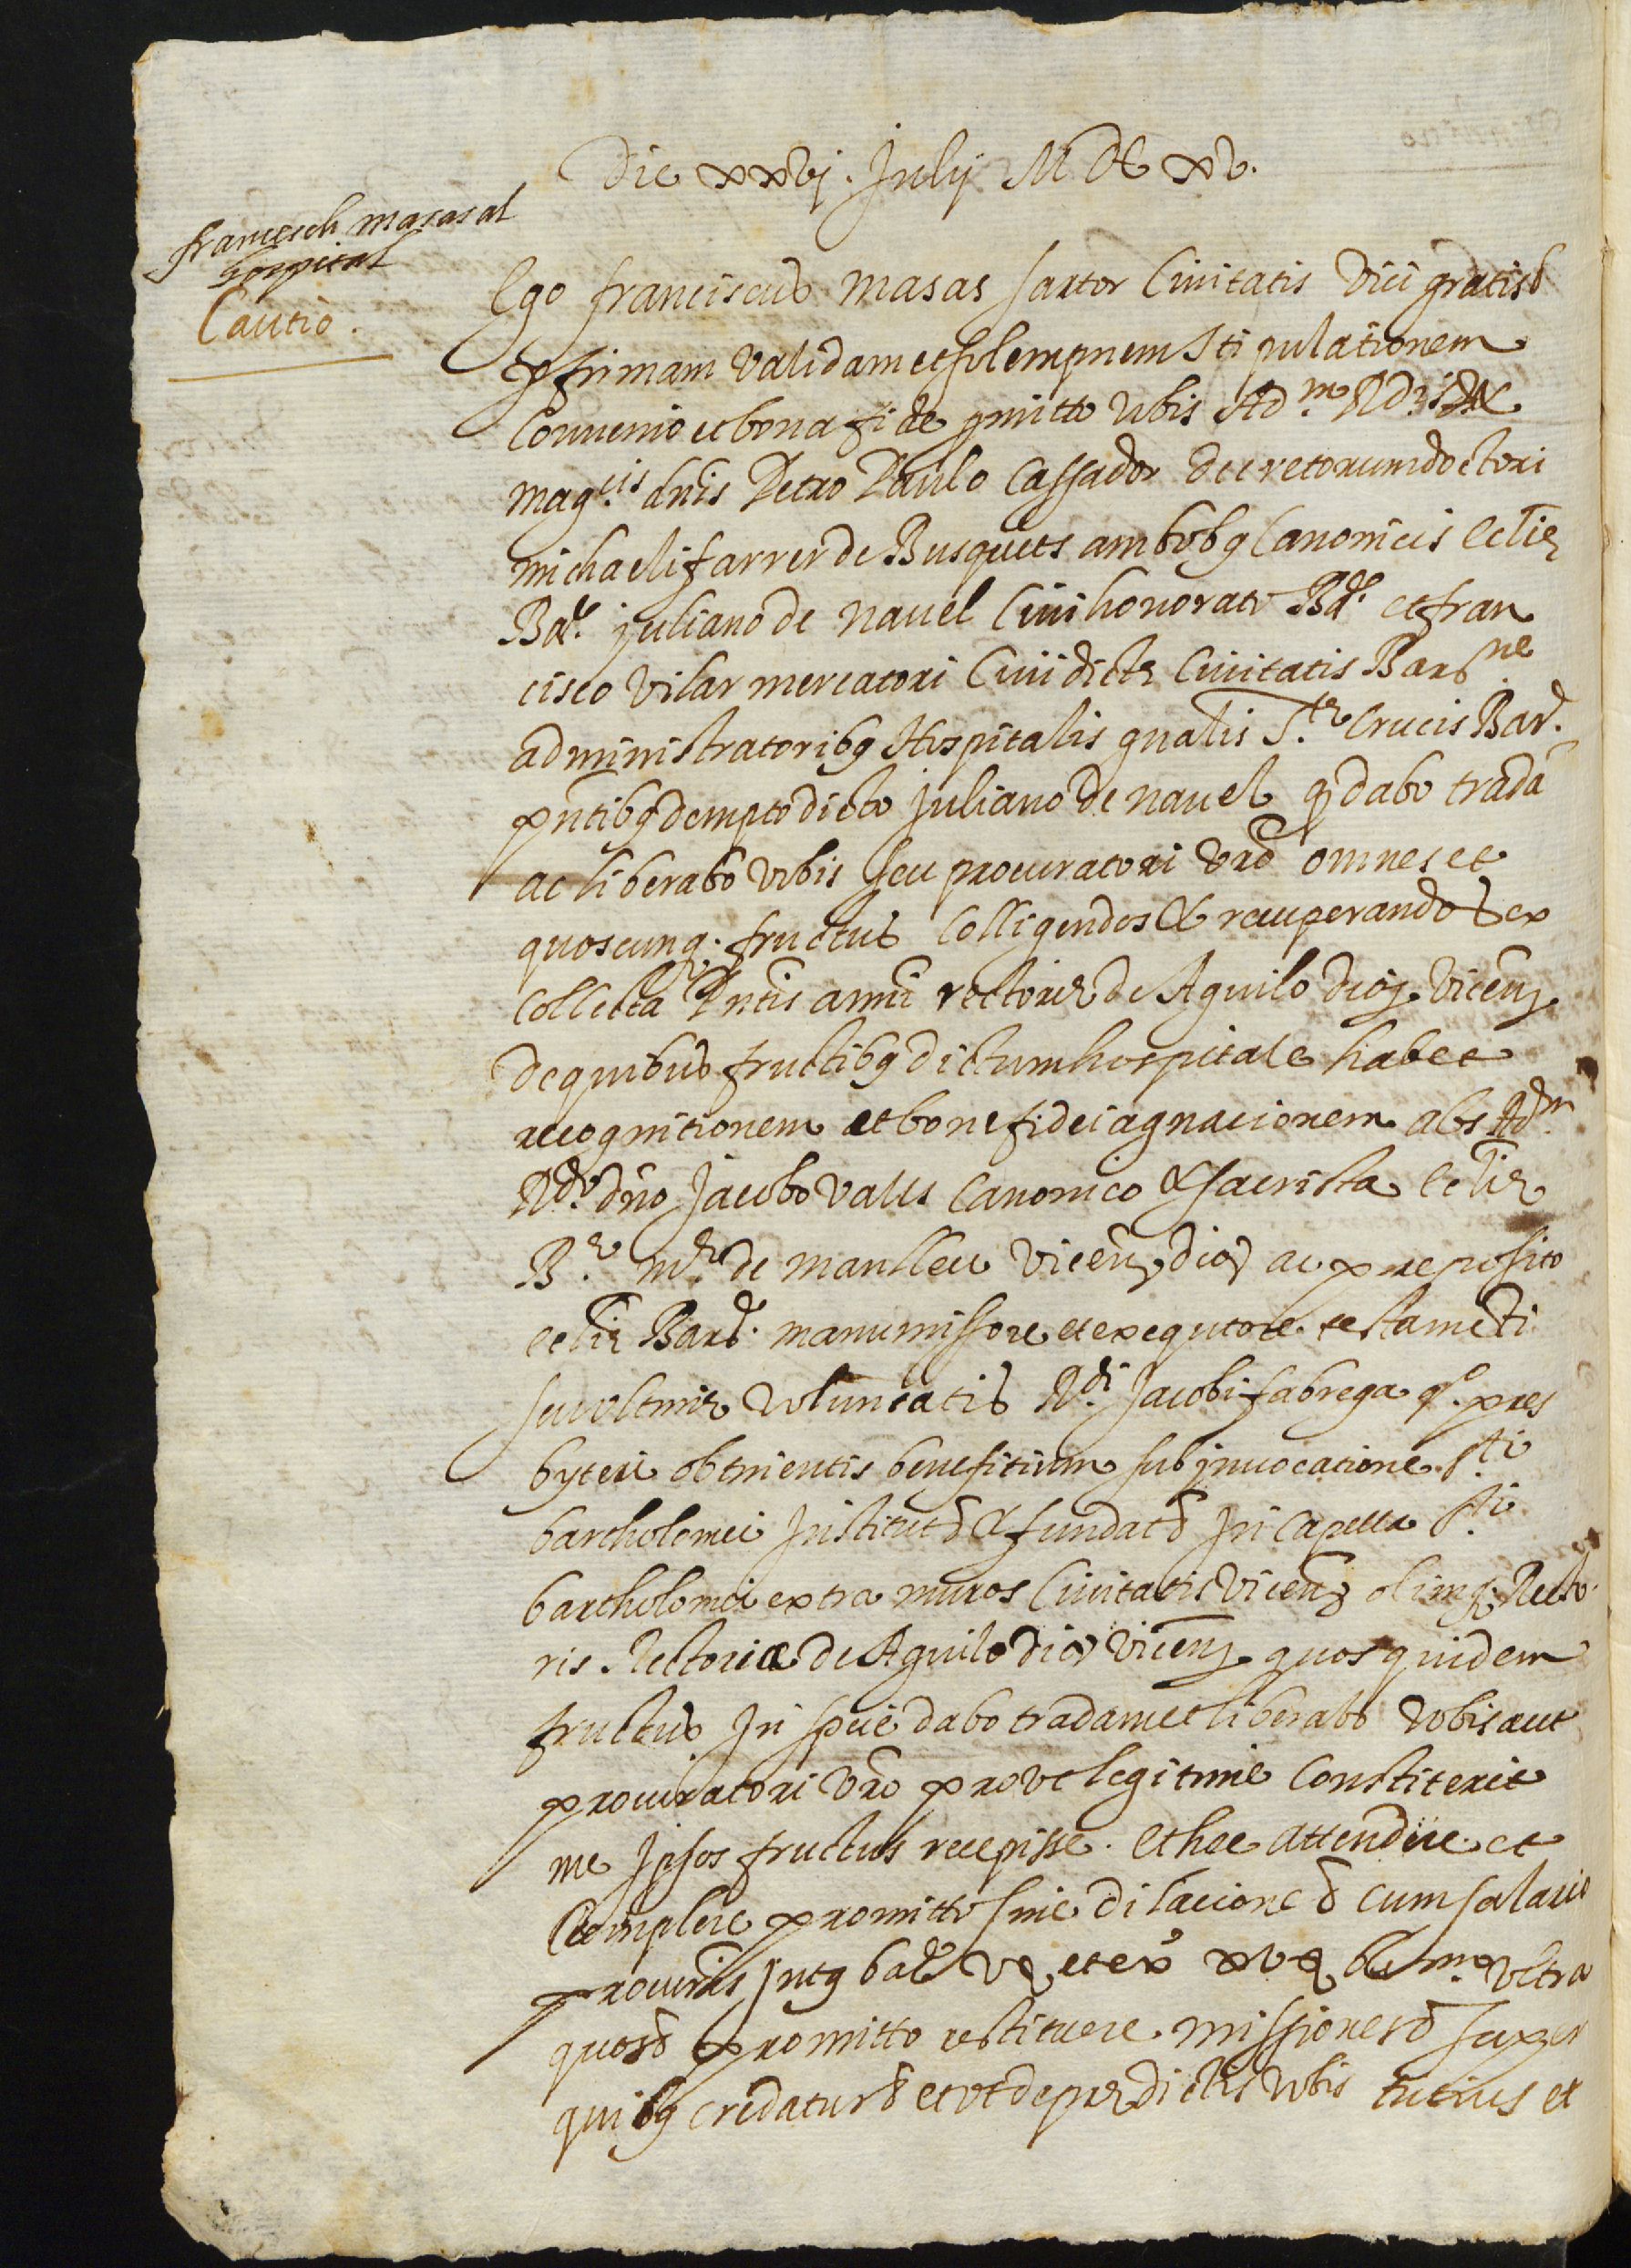 Die xxvj. Julij MDC xv.
francesch masas al
hospital
Cautio.
Ego franciscus masas sartor Civitatis Vici gratis &
per firmam validam et solempnem stipulationem
Convenio et bona fide promitto vobis Adm. Rdis &
magcis dnis Petro Paulo Cassador decretorum doctori
michaeli farrer de Busquets ambobq Canonicis Ecclie
Bae. juliano de navel Civi honorato Bae. et fran
cisco vilar mercatori Civi dicte Civitatis Barne
administratoribq Hospitalis gnalis Ste Crucis Bare.
pntibq dempto dicto juliano de navel q dabo tradā
ac liberabo vobis seu procuratori vro omnes et
quoscunq. fructus Colligendos & recuperandos ex
Collecta Pntis anni rectorie de Aguilo dioc. Vicen.
de quibus fructibq dictum hospitale habet
recognitionem et bone fidei agnacionem abs Adm.
Rdo. dño Jacobo valls Canonico & sacrista Ecclie
Be. me de manlleu Vicen. dioc. ac preposito
ecclie Bare. manumissore et exequtore testamenti
seu ultime voluntatis Rdi. Jacobi fabrega qo. pres
byteri obtinentis benefitium sub jnvocatione Sti
bartholomei Jnstitut & fundat Jn Capella Sti
bartholomei extra muros Civitatis Vicen. olimq. Recto
ris Rectoriæ de Aguilo dioc. Vicen. quos quidem
fructus Jn spcie dabo tradam et liberabo vobis aut
procuratori vro prout legitime Constiterit
me Jpsos fructus recepisse. Et hec attendere et
Complere promitto sine dilacione & cum salario
procuris Jntq bae v ss et ex xv ss bar. me ultra
quos & promitto restituere missiones & super
quibq credatur & et vt de predictis vobis tutius et